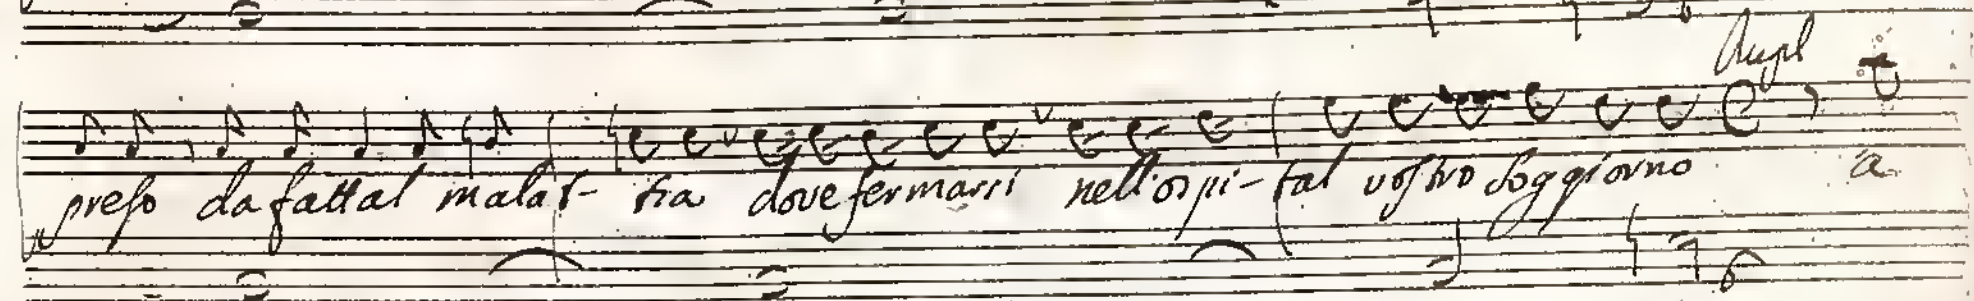 Angl
preso da fattal malat- tia dove fermarsi nell'ospi- tal vostro soggiorno a